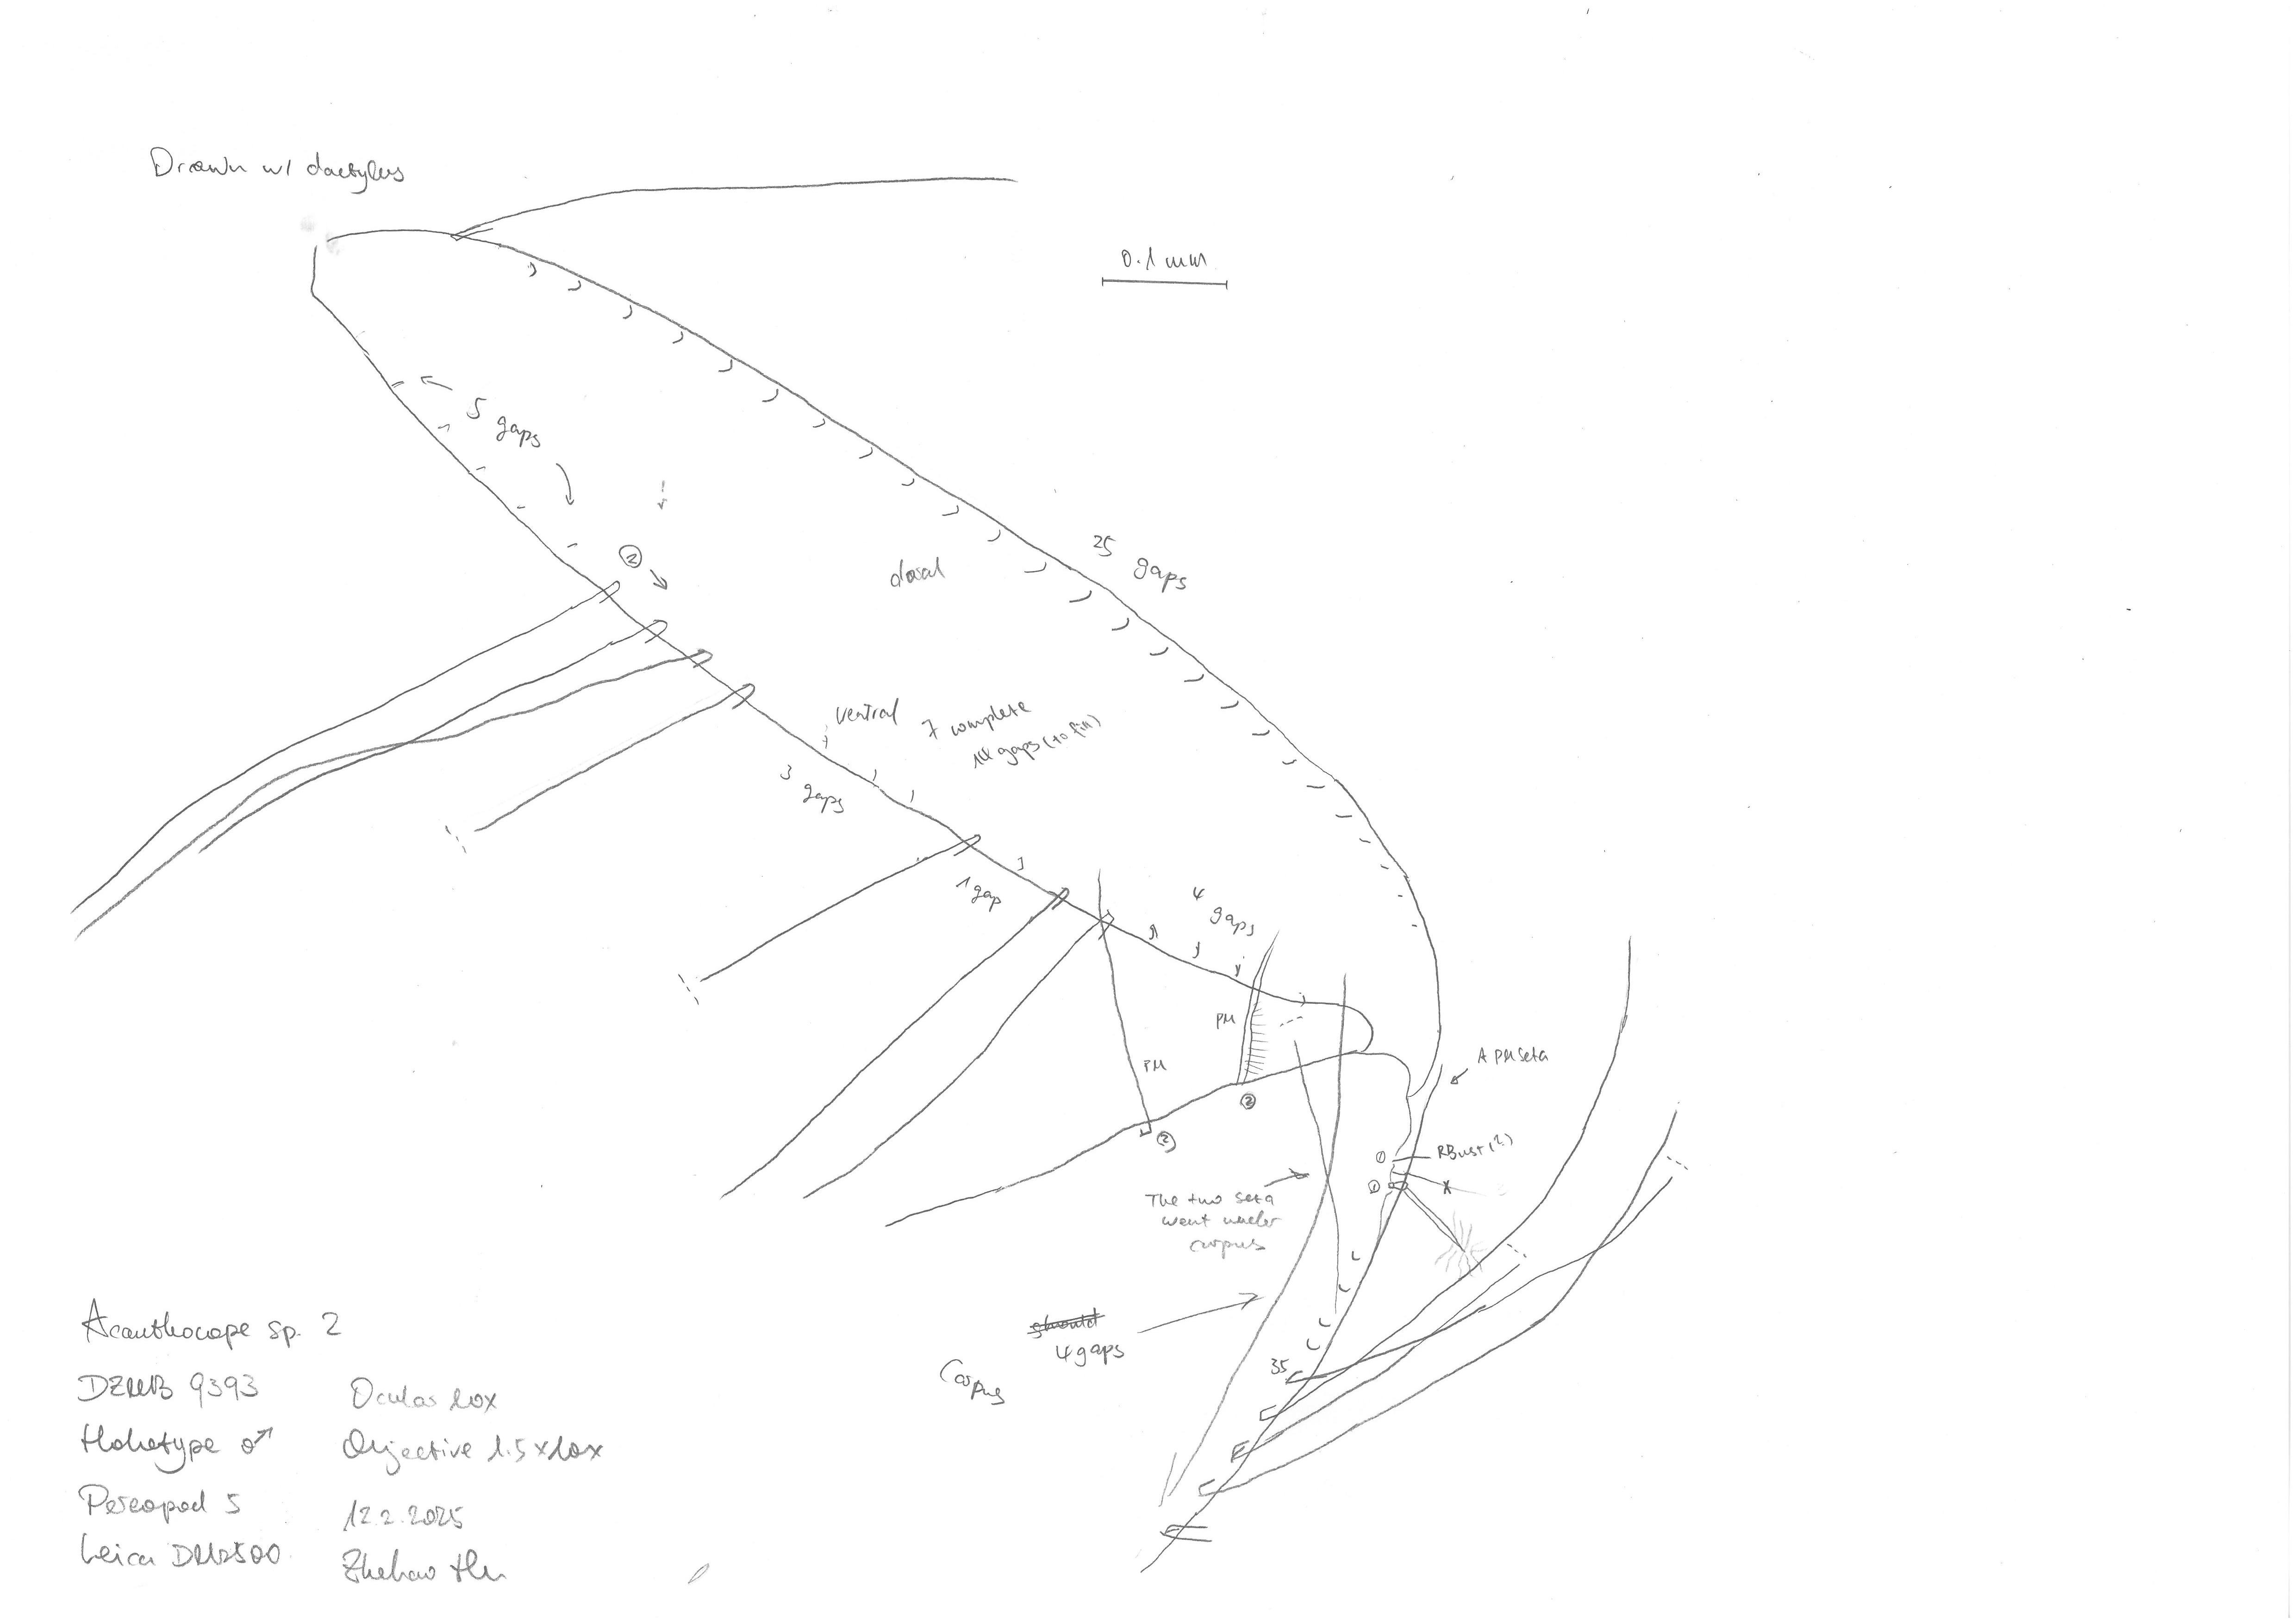 Drawn w/ dactylus
0.1 mm
5 gaps
②
dosal
25 gaps
ventral
7 complete
14 gaps (to fill)
3 gaps
1 gap
4 gaps
PM
PM
②
②
A PM seta
① RBust (?)
① x
The two seta
went under
corpus
should
4 gaps
35
Corpus
Acanthocope sp. 2
DZMB 9393
Holotype ♂
Pereopod 5
Leica DM2500
Ocular 10x
Objective 1.5x10x
12.2.2025
Zhehao Hu